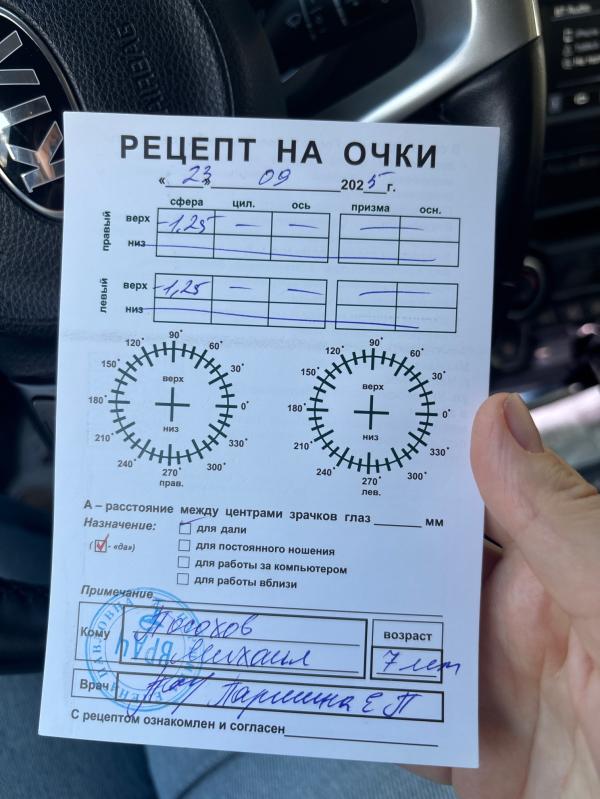 РЕЦЕПТ НА ОЧКИ
« 23 » 09 2025 г.
сфера цил. ось призма осн.
правый
верх -1,25 — — —
низ
левый
верх -1,25 — — —
низ
90° 60° 30° 0° 330° 300° 270° 240° 210° 180° 150° 120°
верх
низ
прав.
90° 60° 30° 0° 330° 300° 270° 240° 210° 180° 150° 120°
верх
низ
лев.
А – расстояние между центрами зрачков глаз ______ мм
Назначение: для дали
( ☑ - «да») для постоянного ношения
для работы за компьютером
для работы вблизи
Примечание
Кому Посохов
Михаил
возраст
7 лет
Врач Паршина Е П
ВРАЧ
ПАВЛОВНА
С рецептом ознакомлен и согласен
AIRBAG